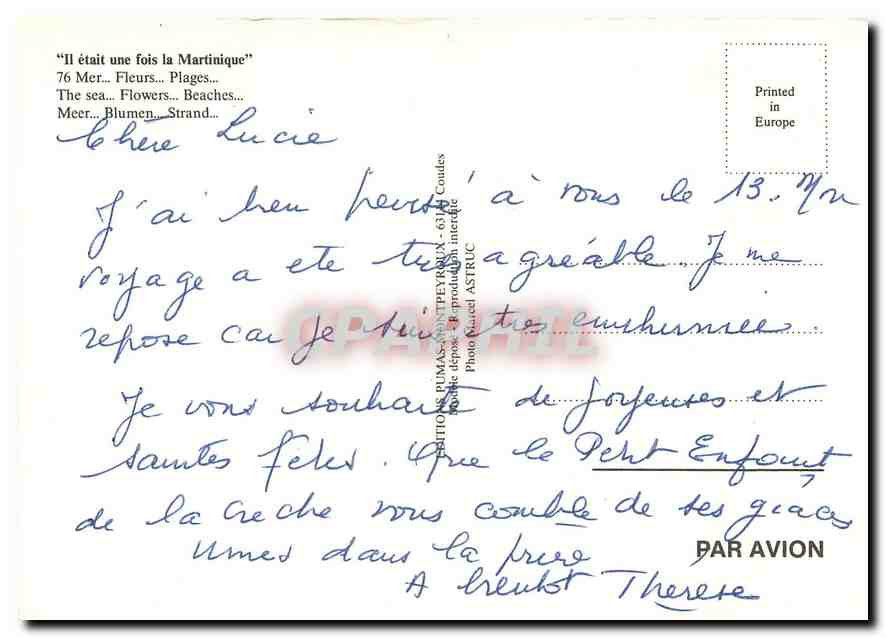 "Il était une fois la Martinique"
76 Mer... Fleurs... Plages...
The sea... Flowers... Beaches...
Meer... Blumen... Strand...
Printed
in
Europe
Chère Lucie
J'ai bien pensé à vous le 13. Mon
voyage a ete très agréable. Je me
repose car je suis très enrhumée.
Je vous souhaite de joyeuses et
saintes fêtes. Que le Petit Enfant
de la creche vous comble de ses graces
Unies dans la priere
A bientot Therese
PAR AVION
EDITIONS PUMAS-MONTPEYROUX - 63114 Coudes
Modèle déposé - Reproduction interdite
Photo Marcel ASTRUC
CPARAMA